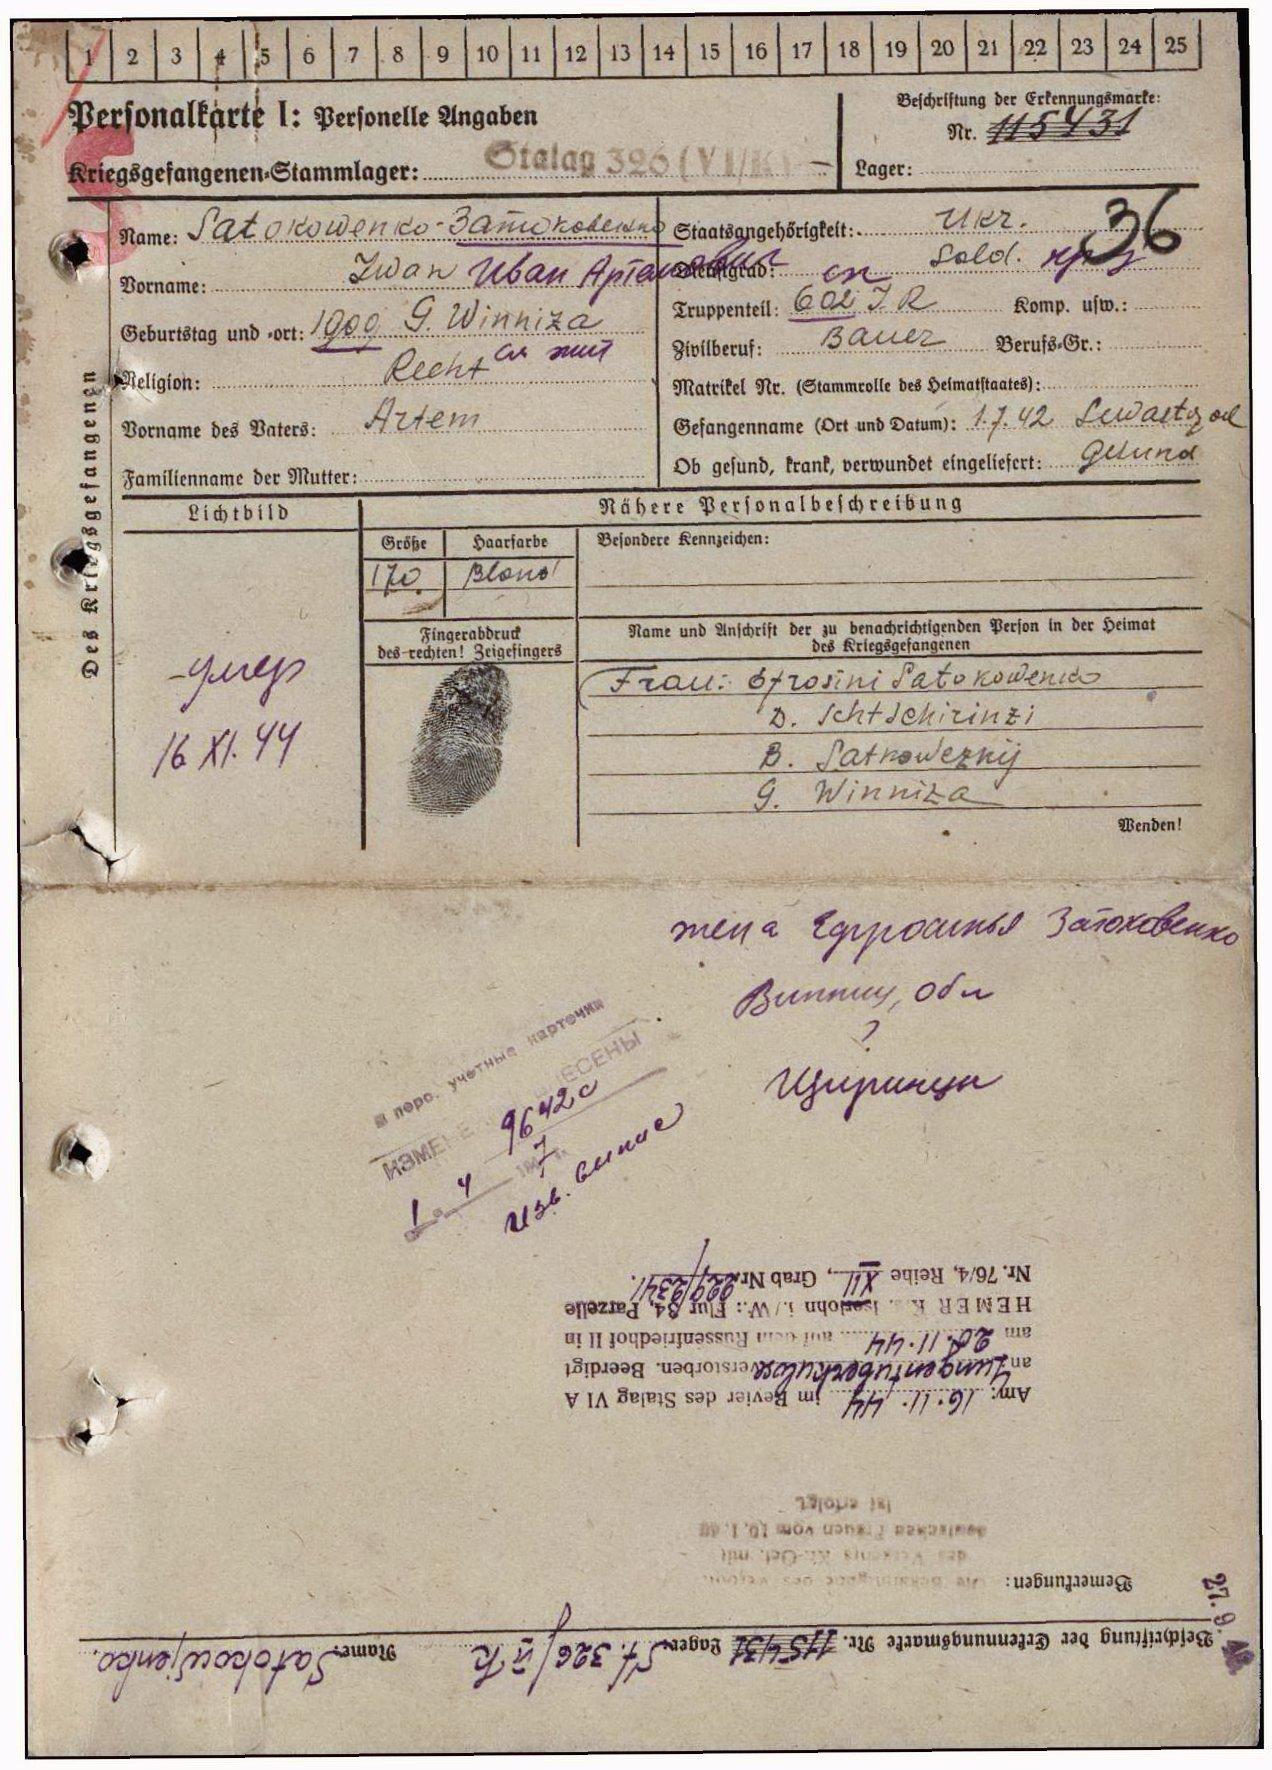 1 2 3 4 5 6 7 8 9 10 11 12 13 14 15 16 17 18 19 20 21 22 23 24 25
Personalkarte I: Personelle Angaben
Kriegsgefangenen-Stammlager: Stalag 326 (VI/K)
Beschriftung der Erkennungsmarke:
Nr. 115431
Lager:
Des Kriegsgefangenen
Name: Satokowenko - Затоковенко
Vorname: Iwan Иван Артемович
Geburtstag und -ort: 1909 G. Winniza
Religion: Recht
Vorname des Vaters: Artem
Familienname der Mutter:
36
Staatsangehörigkeit: Ukr.
Dienstgrad: Sold.
Truppenteil: 602 J.R Komp. usw.:
Zivilberuf: Bauer Berufs-Gr.:
Matrikel Nr. (Stammrolle des Heimatstaates):
Gefangenname (Ort und Datum): 1.7.42 Sewastopol
Ob gesund, krank, verwundet eingeliefert: Gesund
Lichtbild
Nähere Personalbeschreibung
Größe Haarfarbe Besondere Kennzeichen:
170. Blond
Fingerabdruck
des rechten! Zeigefingers
Name und Anschrift der zu benachrichtigenden Person in der Heimat
des Kriegsgefangenen
Frau: Efrosini Satokowenko
D. Schtschirinzi
B. Satkowezkij
G. Winniza
Wenden!
умер
16 XI. 44
жена Ефросинья Затоковенко
Винниц, обл
?
Щиринцы
В перс. учетные карточки
ИЗМЕНЕНИЯ ВНЕСЕНЫ
9642с
1 4 194 7 г.
Изв.
Nr. 76/4, Reihe XII, Grab Nr. 229/2341.
HEMER Kr. Iserlohn i./W.: Flur 34, Parzelle
am 20.11.44 auf dem Russenfriedhof II in
an Lungentuberkulose verstorben. Beerdigt
Am: 16.11.44 im Revier des Stalag VI A
ist erfolgt
deutschen Frauen vom 10.1.40
des Verkehrs Kr.-Gef. mit
Die Bekanntgabe des Verbots
Bemerkungen:
27.9.42
Beschriftung der Erkennungsmarke Nr. 115431 Lager: St. 326/VI K Name: Satokowjenko.